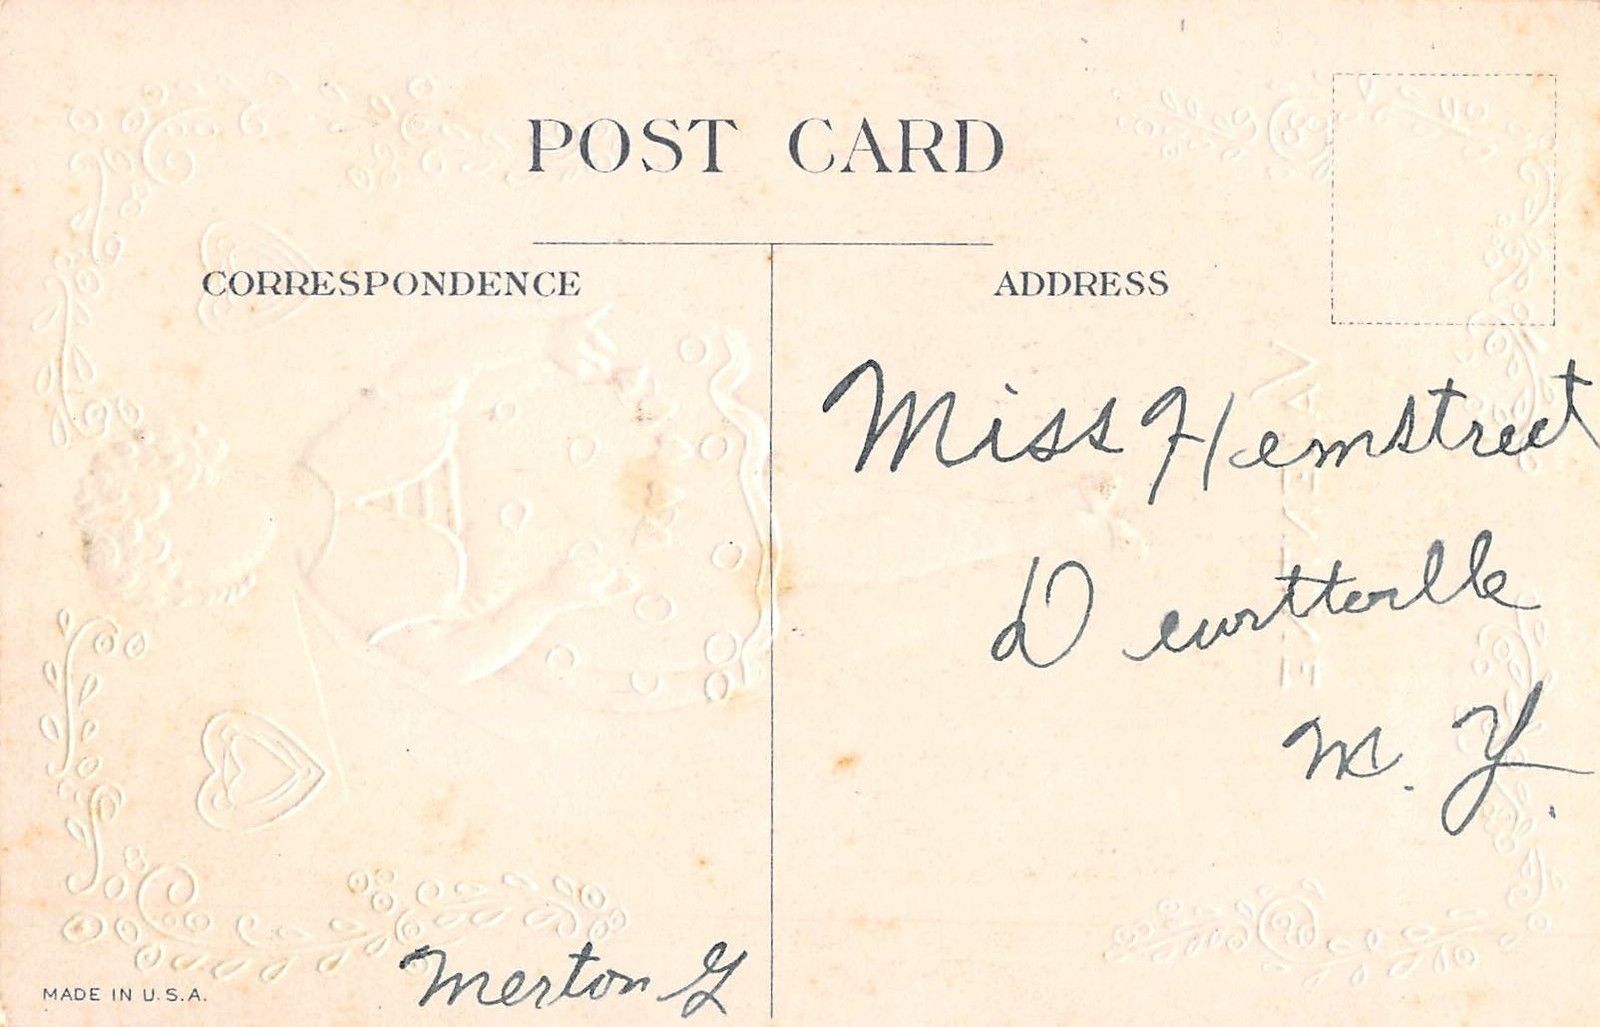 POST CARD
CORRESPONDENCE
ADDRESS
Miss Hemstreet
Dewittville
N. Y.
Merton G
MADE IN U.S.A.